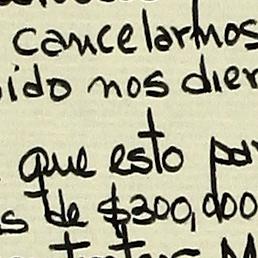 cancelarnos
ido nos dier
que esto pa
s de $300,000